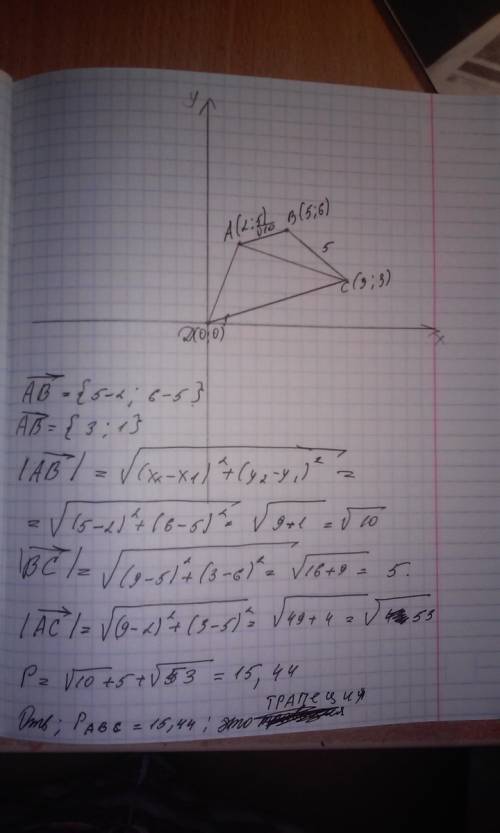 y
A(2;5) √10 B(5;6)
5
C(9;3)
D(0;0)
x
AB = {5-2; 6-5}
AB = {3; 1}
|AB| = √(x₂-x₁)²+(y₂-y₁)² =
= √(5-2)²+(6-5)² = √9+1 = √10
|BC| = √(9-5)²+(3-6)² = √16+9 = 5.
|AC| = √(9-2)²+(3-5)² = √49+4 = √53
P = √10+5+√53 = 15,44
трапеция
Отв; P ABC = 15,44; это